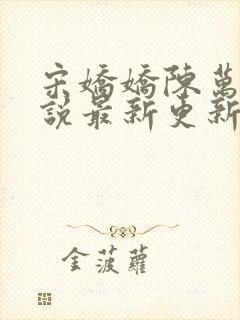 宋嬌嬌陳萬
說最新更新
金菠蘿